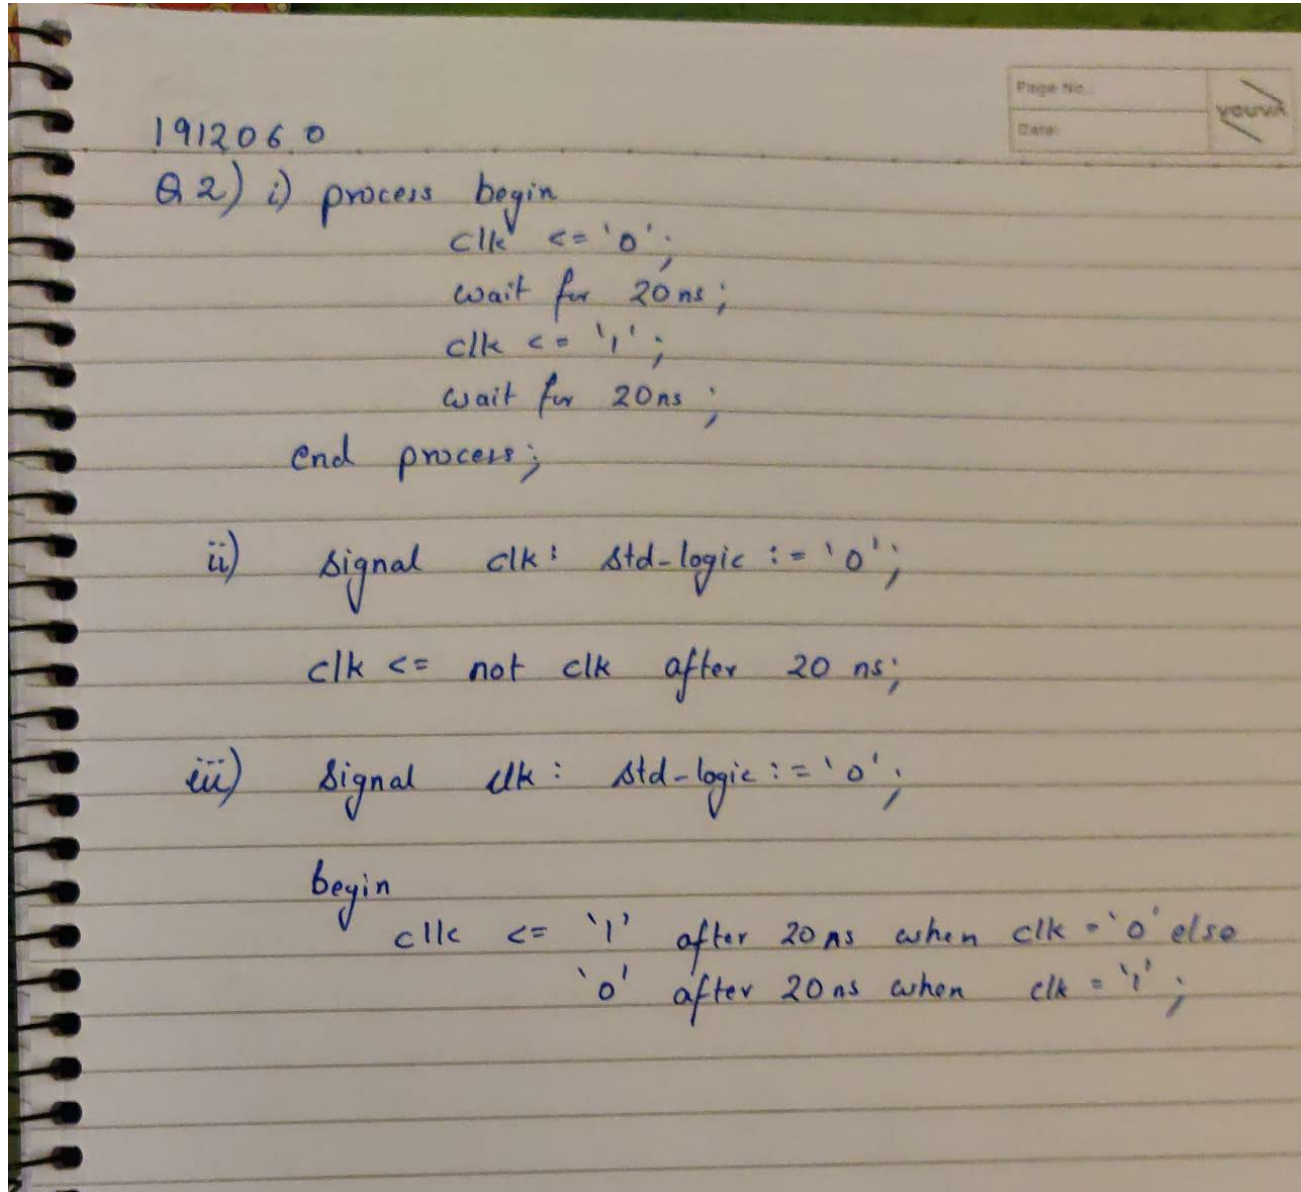 Page No.
Date:
YOUVA
1912060
Q2) i) process begin
clk <= '0';
wait for 20 ns;
clk <= '1';
wait for 20ns;
end process;
ii) signal clk: std-logic := '0';
clk <= not clk after 20 ns;
iii) signal clk: std-logic := '0';
begin
clk <= '1' after 20 ns when clk = '0' else
'0' after 20 ns when clk = '1';